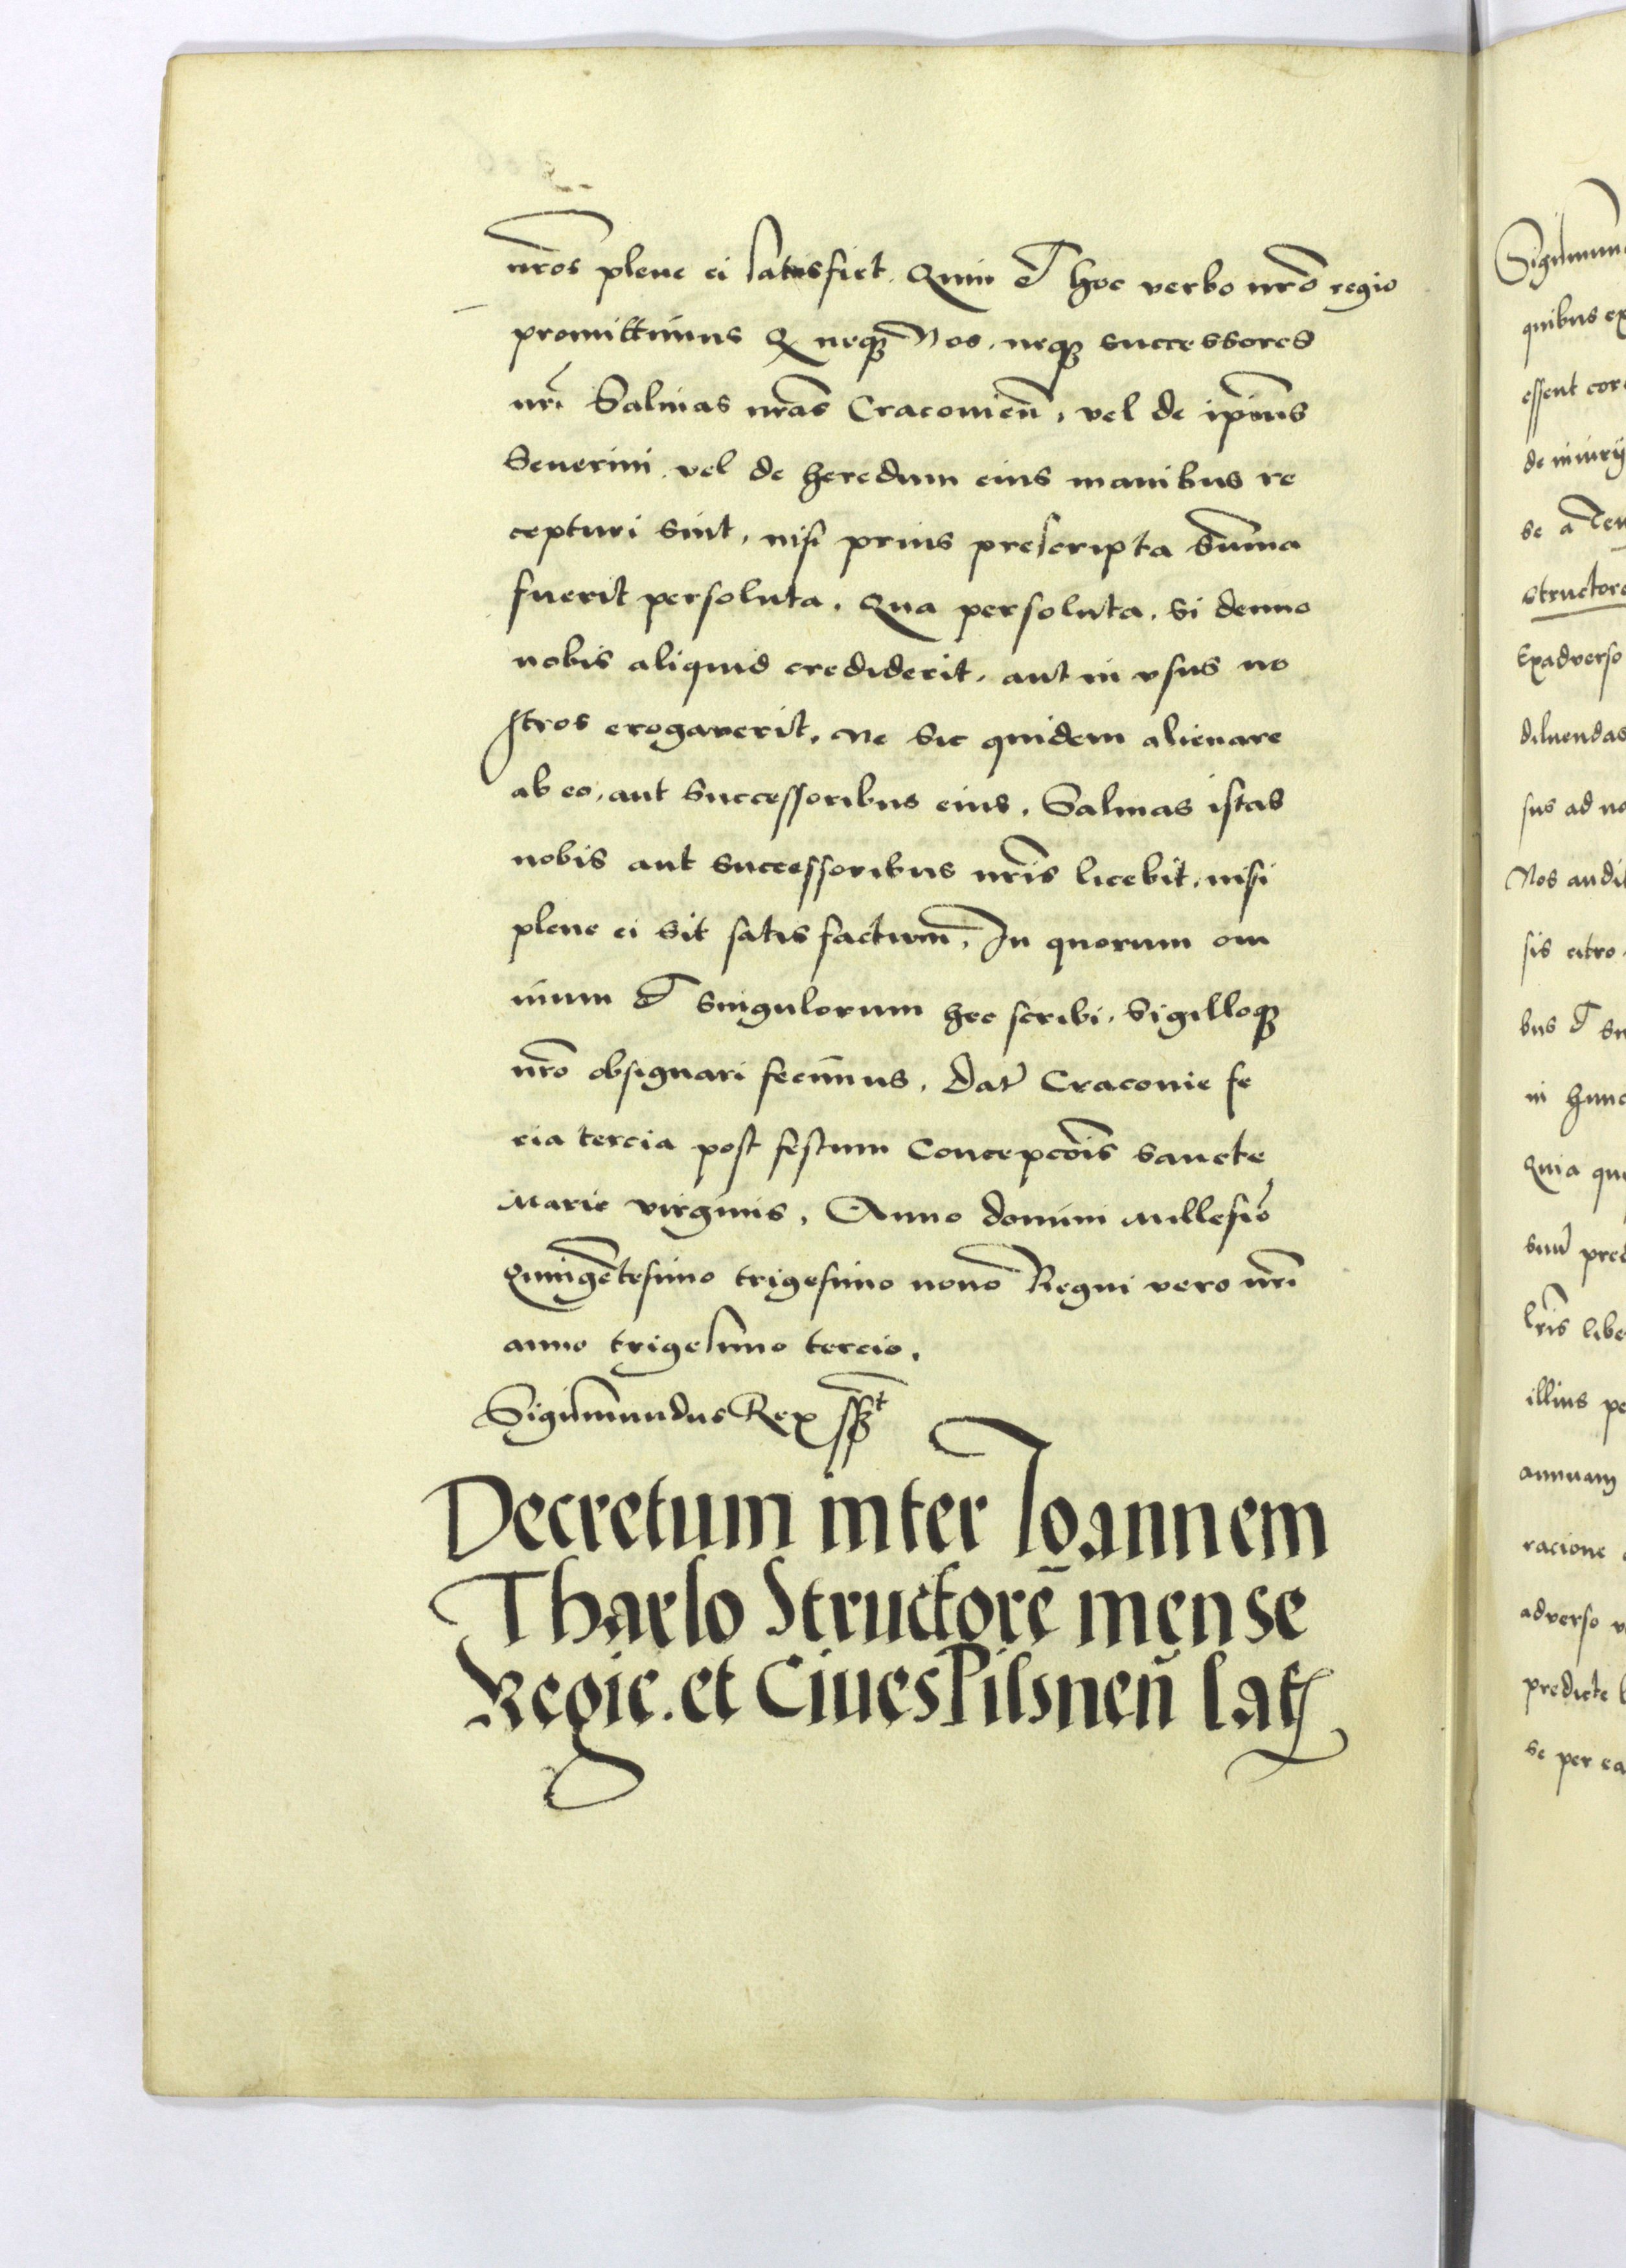 nr̃os plene ei satisfiet. Quin et hoc verbo nr̃o regio
promittimus Q neq3 Nos. neq3 successores
nr̃i Salinas nr̃as Cracouien̄, vel de ip̄ius
Seuerini. vel de heredum eius manibus re
cepturi sint, nisi prius prescripta Sum̄a
fuerit persoluta. Qua persoluta. Si denuo
nobis aliquid crediderit, aut in vsus no
stros erogaverit, ne sic quidem alienare
ab eo, aut Successoribus eius, Salinas istas
nobis aut Successoribus nr̃is licebit, nisi
plene ei sit satis factum, In quorum om
nium et Singulorum hec scribi. Sigilloq3
nr̃o obsignari fecimus, Dat Cracouie fe
ria tercia post festum Concepcōis Sancte
Marie virginis, Anno domini Millesīo
Quingētesimo trigesimo nono Regni vero nr̃i
anno trigesimo tercio.
Sigismundus Rex sst
Decretum inter Ioannem
Tharlo Structorē mense
Regie. et Ciues Pilsnen̄ lat
Sigismun
quibus ex
essent cor
de iniurij
se a Ten
structore
Exadverso
diluendas
sus ad no
Nos audit
sis citro
bus et su
in hunc
Quia qu
sunt pred
lr̃is libe
illius pe
annuam
racione
adverso v
predicte
se per ea